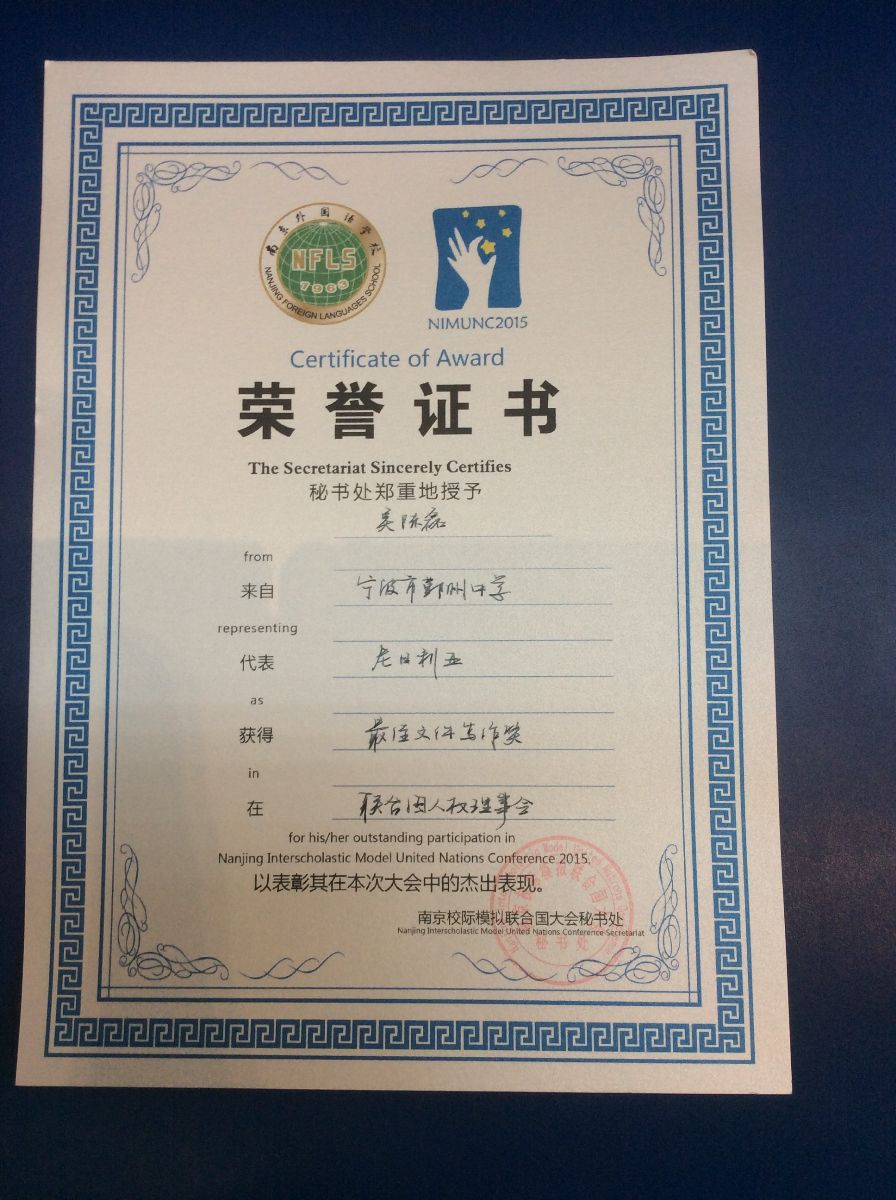 南京外国语学校
NFLS
1963
NANJING FOREIGN LANGUAGES SCHOOL
NIMUNC2015
Certificate of Award
荣誉证书
The Secretariat Sincerely Certifies
秘书处郑重地授予
吴陈磊
from
来自 宁波市鄞州中学
representing
代表 尼日利亚
as
获得 最佳文件写作奖
in
在 联合国人权理事会
for his/her outstanding participation in
Nanjing Interscholastic Model United Nations Conference 2015.
以表彰其在本次大会中的杰出表现。
南京校际模拟联合国大会秘书处
Nanjing Interscholastic Model United Nations Conference Secretariat
秘书处